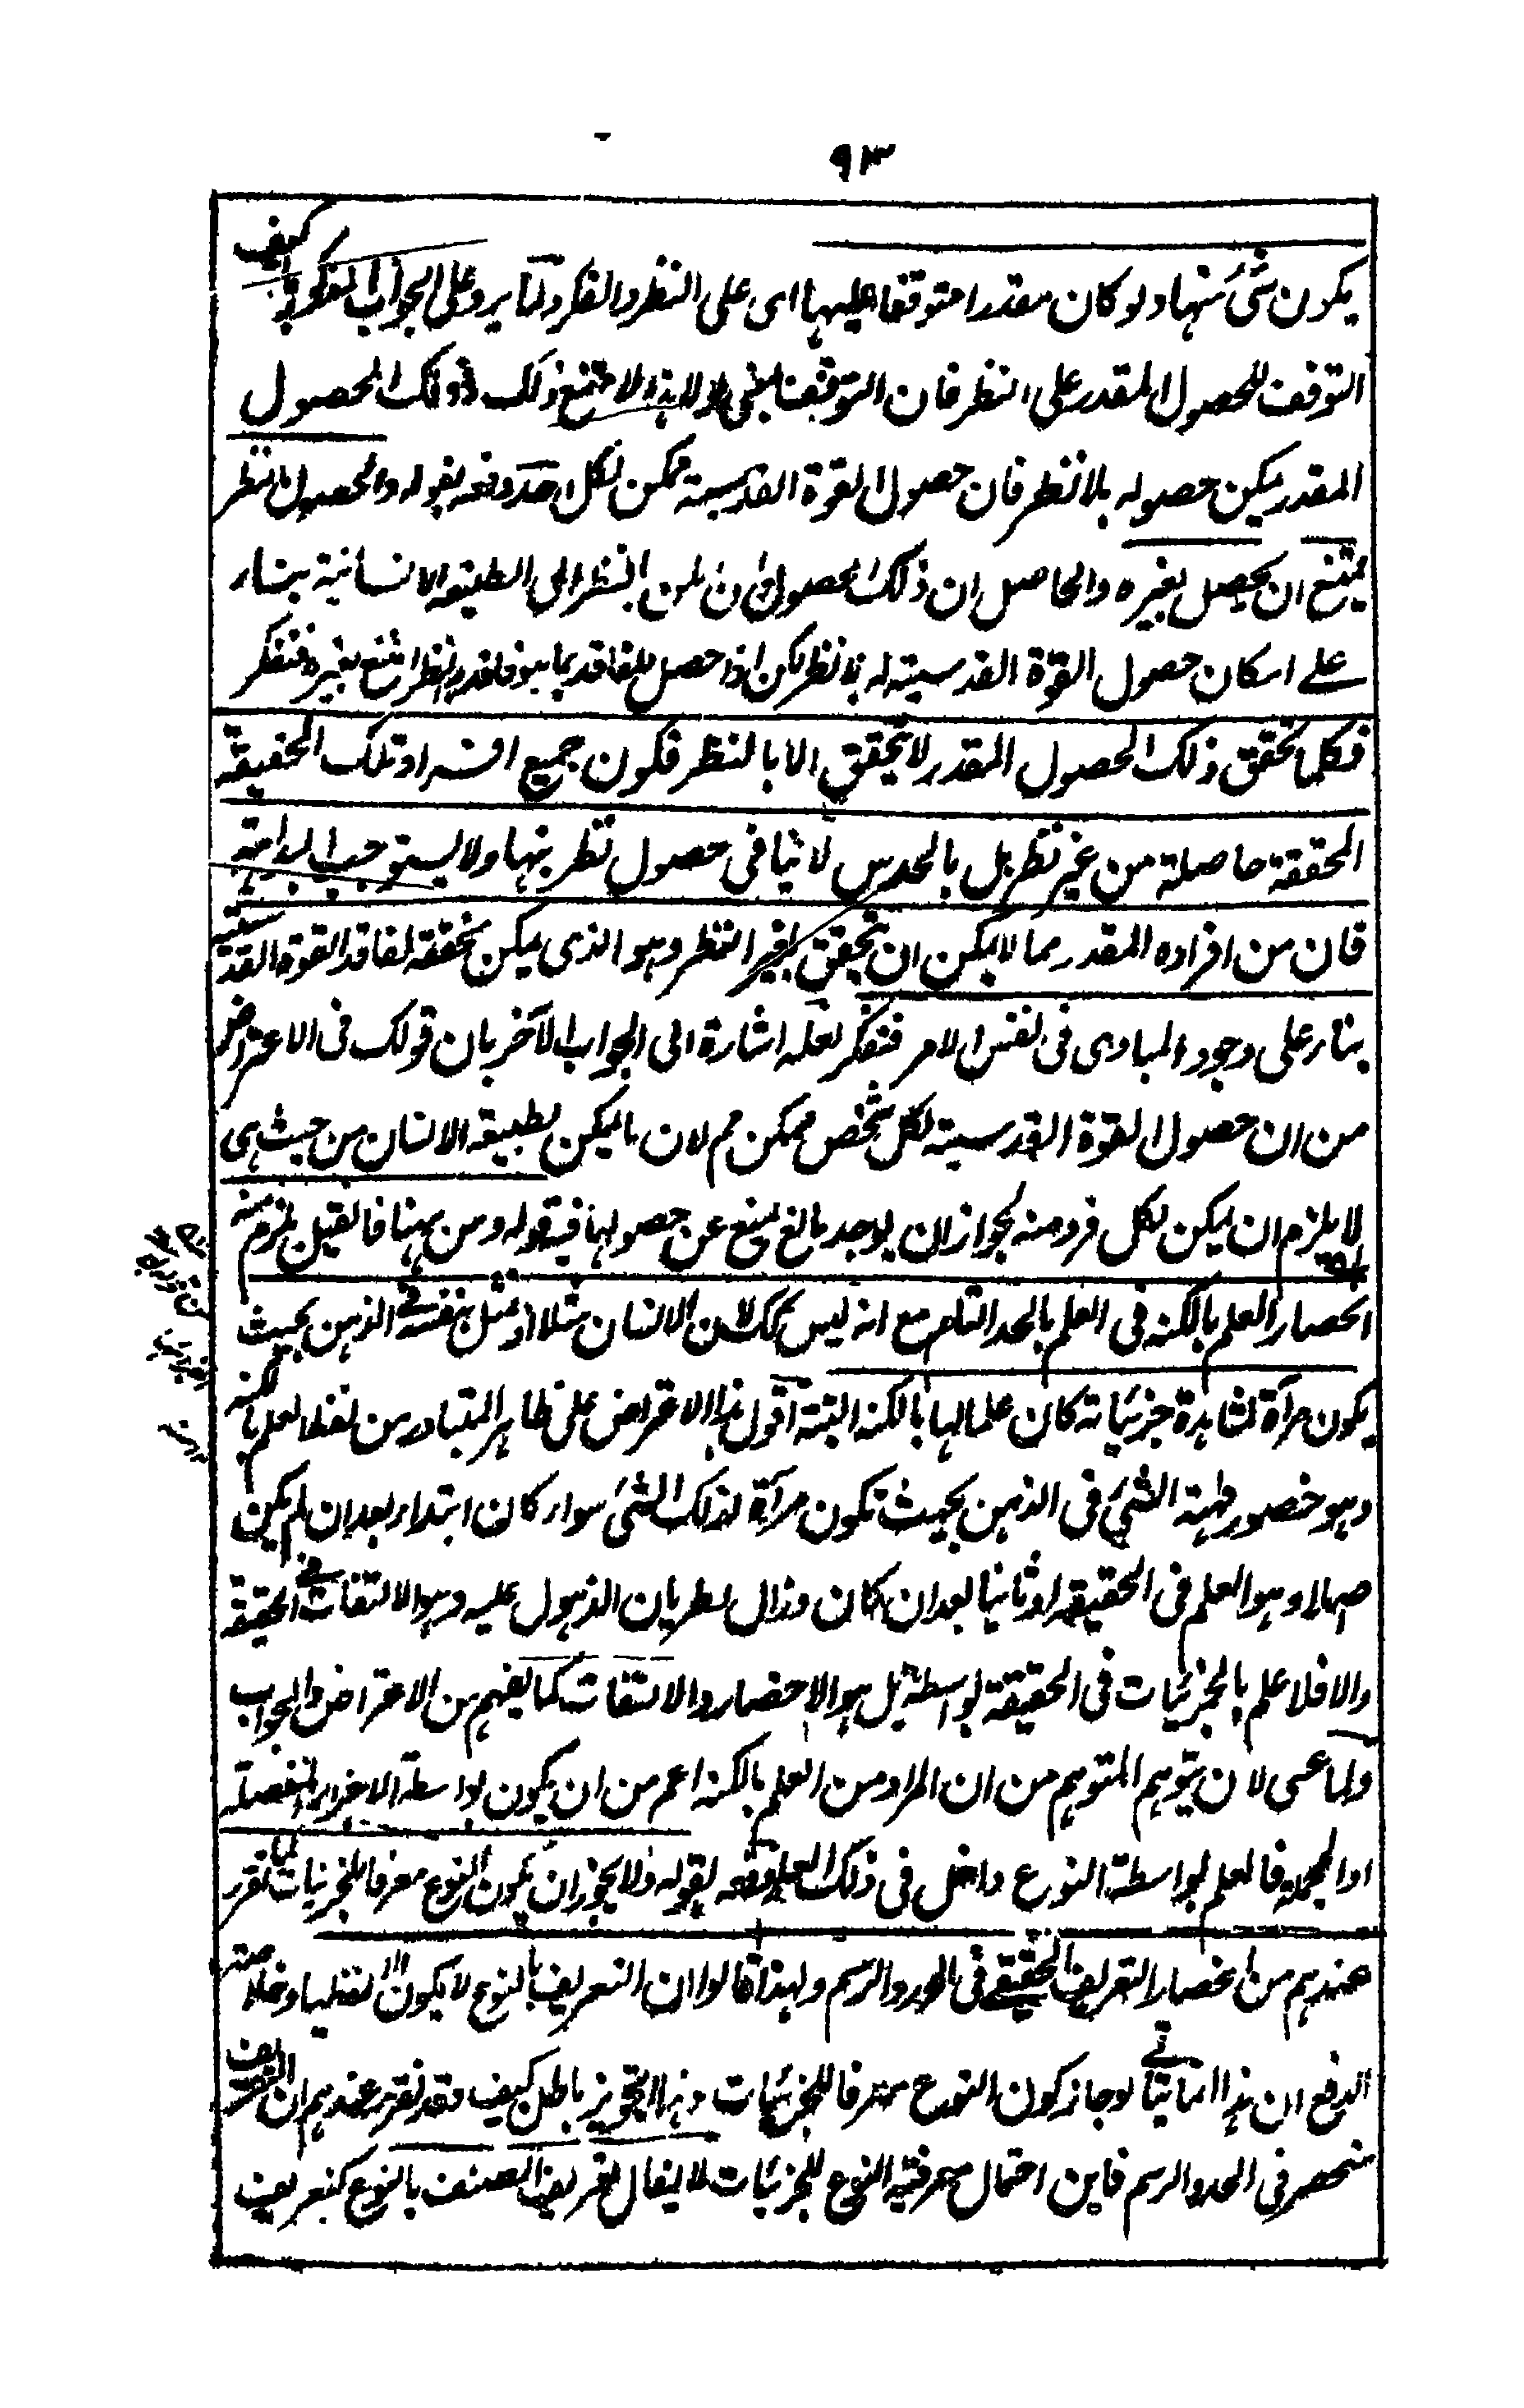 ٩٣
يكون شئ منها ولو كان مقدرا متوقفا عليهما اى على النظر والفكر ولما يرد على الجواب المذكور كيف
التوقف للحصول المقدر على النظر فان التوقف بمعنى لولاه لامتنع ذلك وذلك الحصول
المقدر يمكن حصوله بلا نظر فان حصول القوة القدسية ممكن لكل احد دفعه بقوله والحصول بالنظر
يمتنع ان يحصل بغيره والحاصل ان ذلك الحصول وان بالنظر الى الطبيعة الانسانية بناء
على امكان حصول القوة القدسية له بلا نظر لكن اذا حصل للفاقد بما هو فاقد بالنظر امتنع بغيره فتفكر
فكلما تحقق ذلك الحصول المقدر لا يتحقق الا بالنظر فكون جميع افراد تلك الحقيقة
المحققة حاصلة من غير نظر بل بالحدس لا ينافى حصول نظريتها ولا يستوجب البداهة
فان من افراده المقدر مما لا يمكن ان يتحقق بغير النظر وهو الذى يمكن تحققه لفاقد القوة القدسية
بناء على وجود المبادى فى نفس الامر فتفكر لعله اشارة الى الجواب الآخر بان قولك فى الاعتراض
من ان حصول القوة القدسية لكل شخص ممكن مم لان ما يمكن لطبيعة الانسان من حيث هى
لا يلزم ان يمكن لكل فرد منه لجواز ان يوجد مانع يمنع عن حصولها فيه قوله ومن ههنا فالقيل يلزم منه
انحصار العلم بالكنه فى العلم بالحد التام مع انه ليس كك لان الانسان مثلا اذ تمثل بنفسه فى الذهن بحيث
يكون مرآة لمشاهدة جزئياته كان علما لها بالكنه البتة اقول هذا الاعتراض على ظاهر المتبادر من لفظ العلم بالكنه
وهو حضور مهية الشئ فى الذهن بحيث تكون مرآة لذلك الشئ سواء كان ابتداء بعد ان لم يكن
حاصلا وهو العلم فى الحقيقة او ثانيا بعد ان كان وزال بطريان الذهول عليه وهو الالتفات فى الحقيقة
والا فلا علم بالجزئيات فى الحقيقة بواسطة بل هو الاحضار والالتفات كما يفهم من الاعتراض والجواب
ولما عسى لان يتوهم المتوهم من ان المراد من العلم بالكنه اعم من ان يكون بواسطة الاجزاء المفصلة
او المجملة فالعلم بواسطة النوع داخل فى ذلك العلم دفعه بقوله ولا يجوز ان يكون النوع معرفا للجزئيات لما تقرر
عندهم من انحصار التعريف الحقيقى فى الحد والرسم ولهذا قالوا ان التعريف بالنوع لا يكون الا لفظيا وخلاصته
الدفع ان هذا انما يتأتى لو جاز كون النوع معرفا للجزئيات وهذا التجويز باطل كيف وقد تقرر عندهم ان التعريف
منحصر فى الحد والرسم فاين احتمال معرفية النوع للجزئيات لا يقال تعريف الصنف بالنوع كتعريف